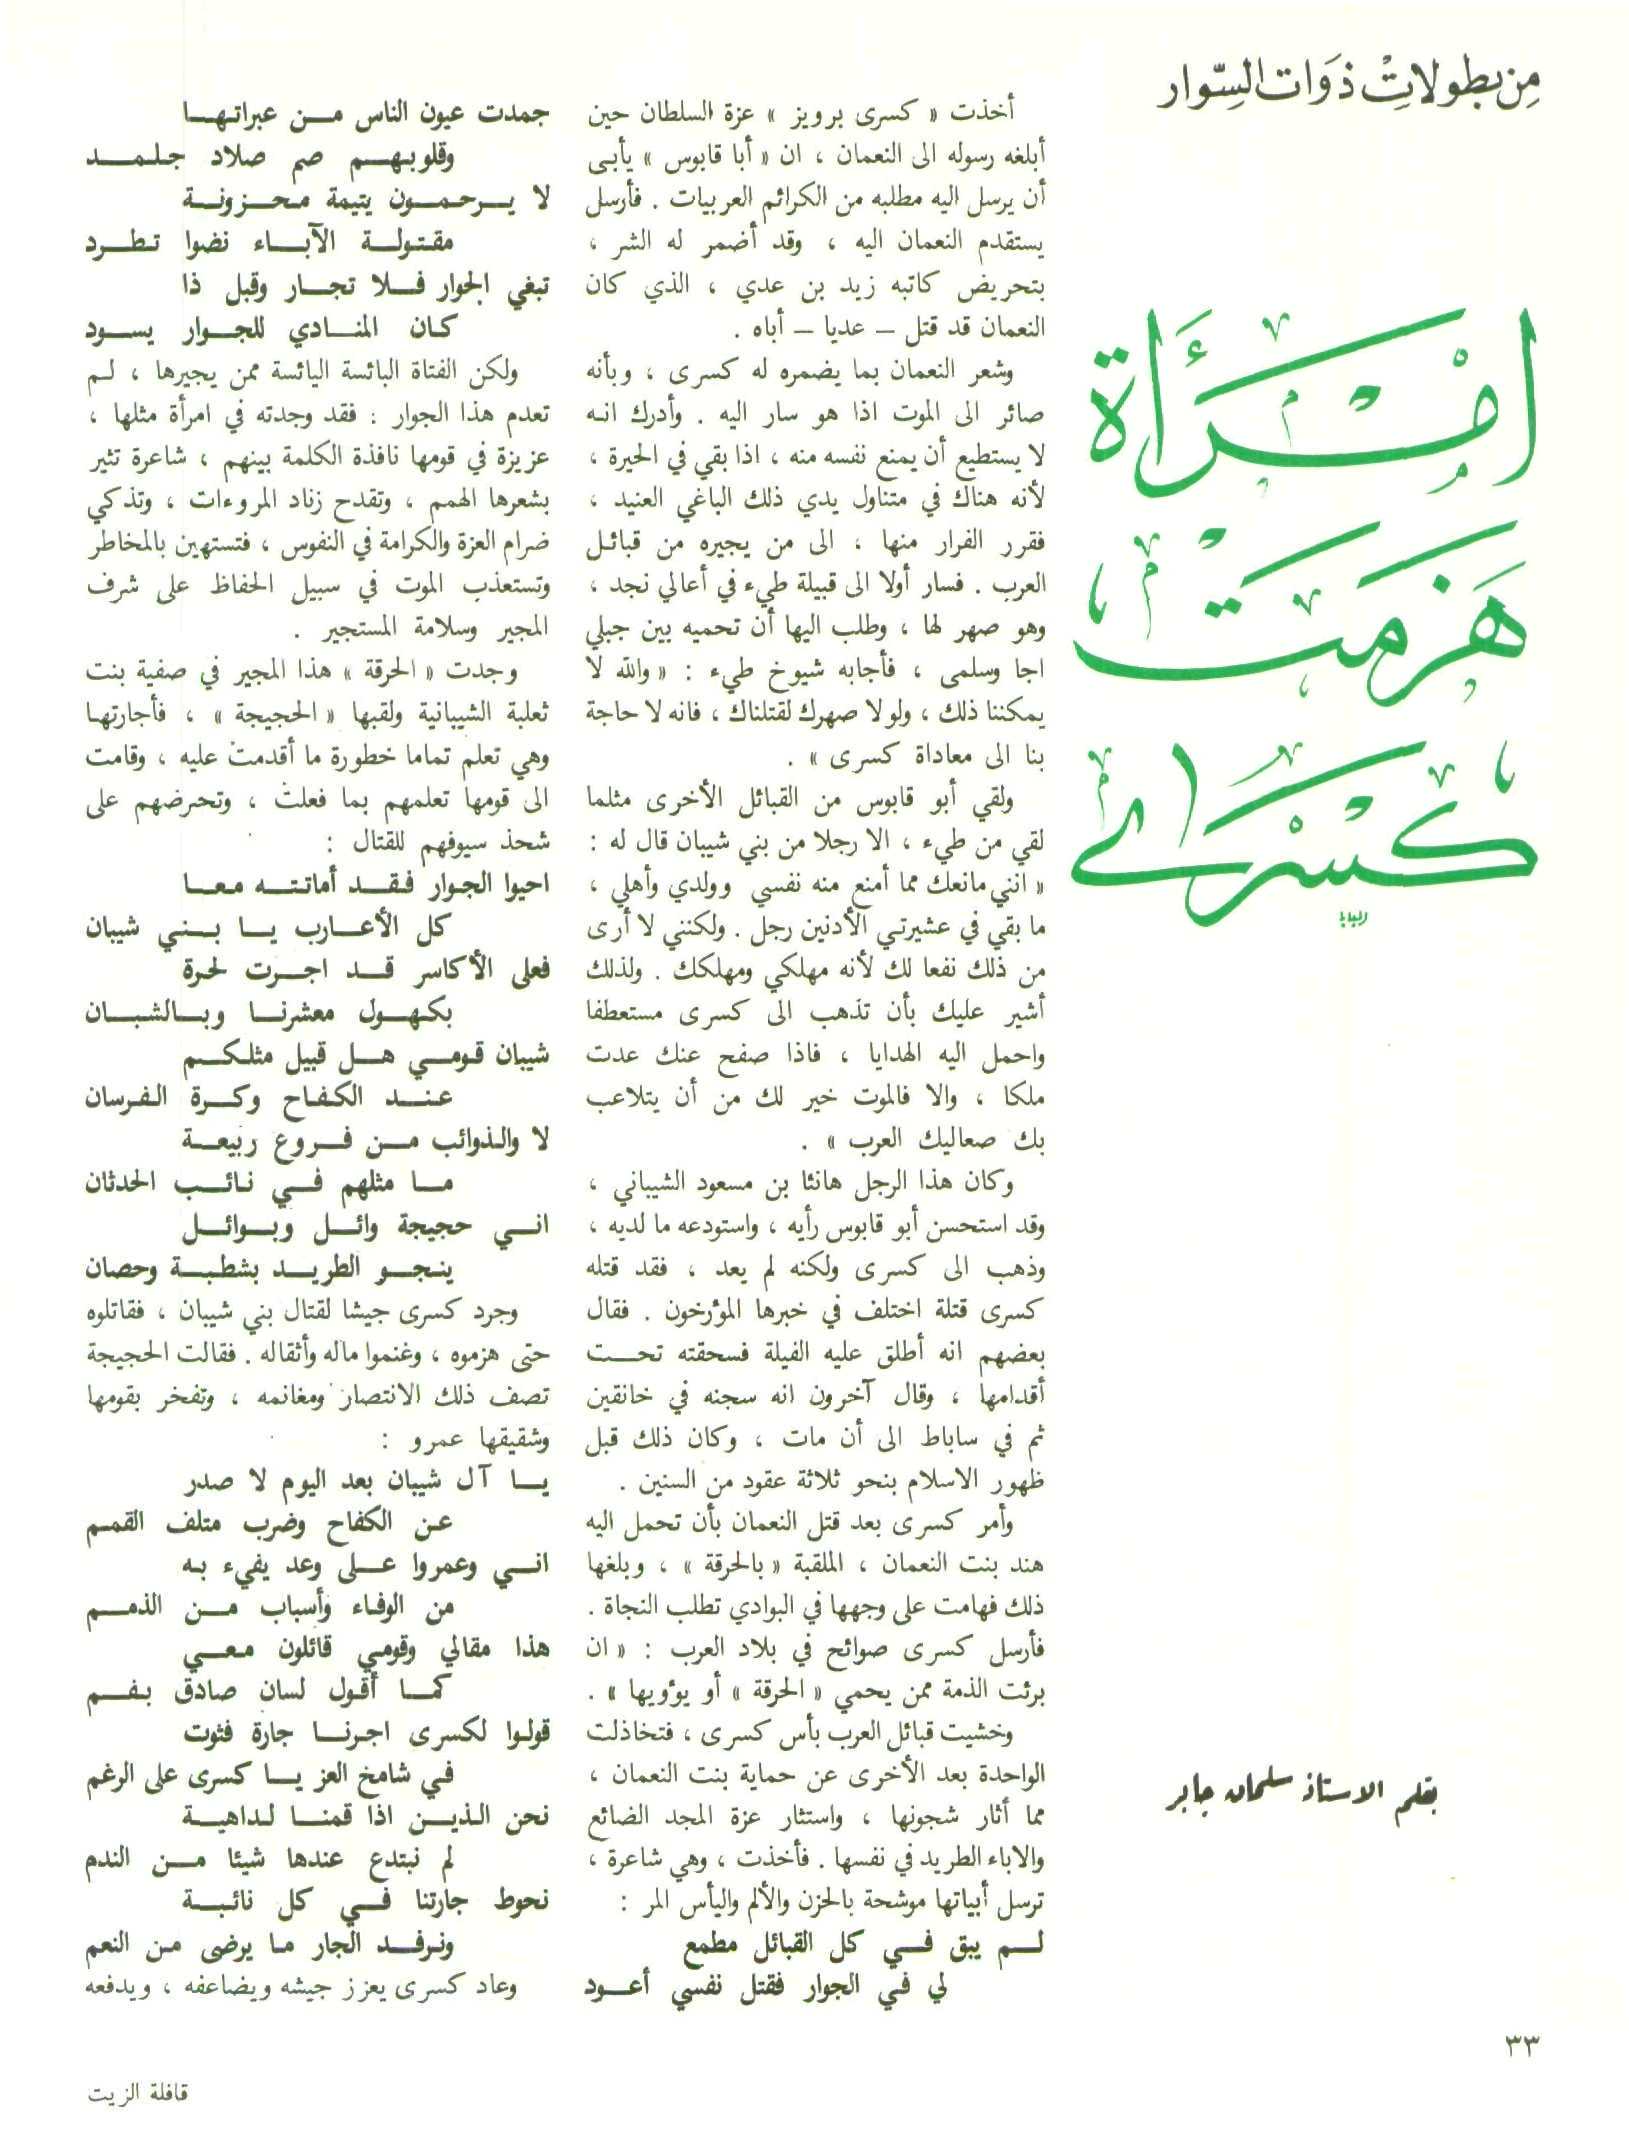 من بطولات ذوات السوار
امرأة
هزمت
كسرى
بقلم الاستاذ سلمان جابر
أخذت « كسرى برويز » عزة السلطان حين
أبلغه رسوله الى النعمان ، ان « أبا قابوس » يأبى
أن يرسل اليه مطلبه من الكرائم العربيات . فأرسل
يستقدم النعمان اليه ، وقد أضمر له الشر ،
بتحريض كاتبه زيد بن عدي ، الذي كان
النعمان قد قتل – عديا – أباه .
وشعر النعمان بما يضمره له كسرى ، وبأنه
صائر الى الموت اذا هو سار اليه . وأدرك انه
لا يستطيع أن يمنع نفسه منه ، اذا بقي في الحيرة ،
لأنه هناك في متناول يدي ذلك الباغي العنيد ،
فقرر الفرار منها ، الى من يجيره من قبائل
العرب . فسار أولا الى قبيلة طيء في أعالي نجد ،
وهو صهر لها ، وطلب اليها أن تحميه بين جبلي
اجا وسلمى ، فأجابه شيوخ طيء : « والله لا
يمكننا ذلك ، ولولا صهرك لقتلناك ، فانه لا حاجة
بنا الى معاداة كسرى » .
ولقي أبو قابوس من القبائل الأخرى مثلما
لقي من طيء ، الا رجلا من بني شيبان قال له :
« انني مانعك مما أمنع منه نفسي وولدي وأهلي ،
ما بقي في عشيرتي الأدنين رجل . ولكنني لا أرى
من ذلك نفعا لك لأنه مهلكي ومهلكك . ولذلك
أشير عليك بأن تذهب الى كسرى مستعطفا
واحمل اليه الهدايا ، فاذا صفح عنك عدت
ملكا ، والا فالموت خير لك من أن يتلاعب
بك صعاليك العرب » .
وكان هذا الرجل هانئا بن مسعود الشيباني ،
وقد استحسن أبو قابوس رأيه ، واستودعه ما لديه ،
وذهب الى كسرى ولكنه لم يعد ، فقد قتله
كسرى قتلة اختلف في خبرها المؤرخون . فقال
بعضهم انه أطلق عليه الفيلة فسحقته تحت
أقدامها ، وقال آخرون انه سجنه في خانقين
ثم في ساباط الى أن مات ، وكان ذلك قبل
ظهور الاسلام بنحو ثلاثة عقود من السنين .
وأمر كسرى بعد قتل النعمان بأن تحمل اليه
هند بنت النعمان ، الملقبة « بالحرقة » ، وبلغها
ذلك فهامت على وجهها في البوادي تطلب النجاة .
فأرسل كسرى صوائح في بلاد العرب : « ان
برئت الذمة ممن يحمي « الحرقة » أو يؤويها » .
وخشيت قبائل العرب بأس كسرى ، فتخاذلت
الواحدة بعد الأخرى عن حماية بنت النعمان ،
مما أثار شجونها ، واستثار عزة المجد الضائع
والاباء الطريد في نفسها . فأخذت ، وهي شاعرة ،
ترسل أبياتها موشحة بالحزن والألم واليأس المر :
لم يبق في كل القبائل مطمع
لي في الجوار فقتل نفسي أعود
جمدت عيون الناس من عبراتها
وقلوبهم صم صلاد جلمد
لا يرحمون يتيمة محزونة
مقتولة الآباء نضوا تطرد
تبغي الجوار فلا تجار وقبل ذا
كان المنادي للجوار يسود
ولكن الفتاة البائسة اليائسة ممن يجيرها ، لم
تعدم هذا الجوار : فقد وجدته في امرأة مثلها ،
عزيزة في قومها نافذة الكلمة بينهم ، شاعرة تثير
بشعرها الهمم ، وتقدح زناد المروءات ، وتذكي
ضرام العزة والكرامة في النفوس ، فتستهين بالمخاطر
وتستعذب الموت في سبيل الحفاظ على شرف
المجير وسلامة المستجير .
وجدت « الحرقة » هذا المجير في صفية بنت
ثعلبة الشيبانية ولقبها « الحجيجة » ، فأجارتها
وهي تعلم تماما خطورة ما أقدمت عليه ، وقامت
الى قومها تعلمهم بما فعلت ، وتحرضهم على
شحذ سيوفهم للقتال :
احيوا الجوار فقد أماتته معا
كل الأعارب يا بني شيبان
فعلى الأكاسر قد اجرت لحرة
بكهول معشرنا وبالشبان
شيبان قومي هل قبيل مثلكم
عند الكفاح وكرة الفرسان
لا والذوائب من فروع ربيعة
ما مثلهم في نائب الحدثان
اني حجيجة وائل وبوائل
ينجو الطريد بشطبة وحصان
وجرد كسرى جيشا لقتال بني شيبان ، فقاتلوه
حتى هزموه ، وغنموا ماله وأثقاله . فقالت الحجيجة
تصف ذلك الانتصار ومغانمه ، وتفخر بقومها
وشقيقها عمرو :
يا آل شيبان بعد اليوم لا صدر
عن الكفاح وضرب متلف القمم
اني وعمروا على وعد يفيء به
من الوفاء وأسباب من الذمم
هذا مقالي وقومي قائلون معي
كما أقول لسان صادق بفم
قولوا لكسرى اجرنا جارة فثوت
في شامخ العز يا كسرى على الرغم
نحن الذين اذا قمنا لداهية
لم نبتدع عندها شيئا من الندم
نحوط جارتنا في كل نائبة
ونرفد الجار ما يرضى من النعم
وعاد كسرى يعزز جيشه ويضاعفه ، ويدفعه
٣٣
قافلة الزيت